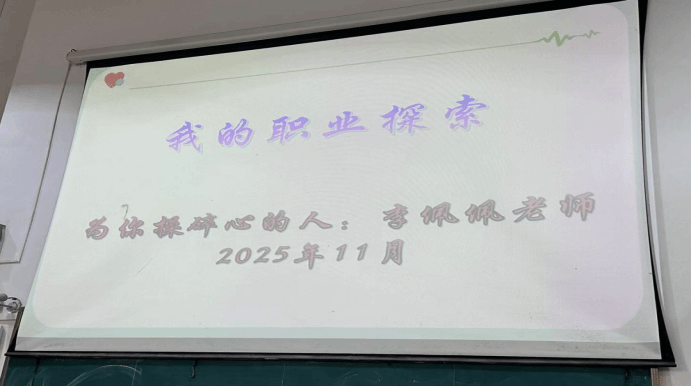 我的职业探索
为你操碎心的人：李佩佩老师
2025年11月